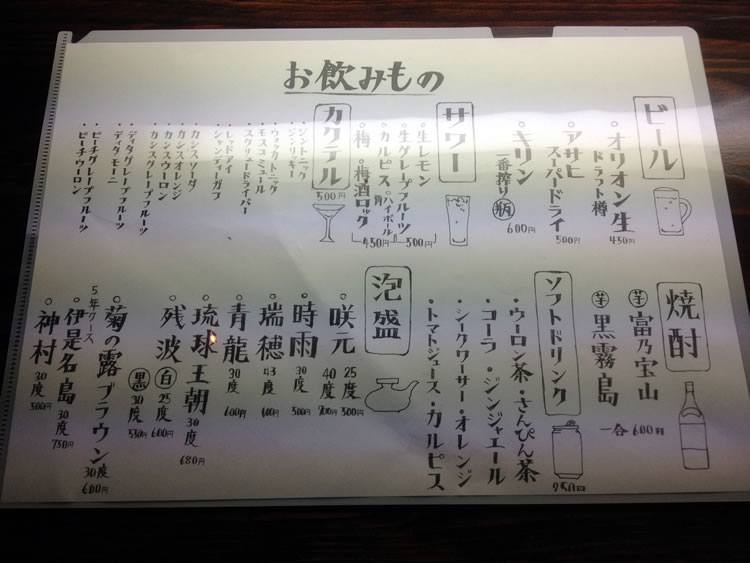 お飲みもの
ビール
オリオン生
ドラフト樽
450円
アサヒ
スーパードライ
500円
キリン
一番搾り 瓶
600円
サワー
生レモン
生グレープフルーツ
500円
カルピス 角ハイボール
梅 梅酒ロック
450円
カクテル
500円
ジントニック
ジンリッキー
ウォッカトニック
モスコミュール
スクリュードライバー
レッドアイ
シャンディーガフ
カシスソーダ
カシスオレンジ
カシスウーロン
カシスグレープフルーツ
ディタグレープフルーツ
ディタモーニ
ピーチグレープフルーツ
ピーチウーロン
焼酎
芋 富乃宝山
芋 黒霧島
一合 600円
ソフトドリンク
250円
・ウーロン茶・さんぴん茶
・コーラ・ジンジャエール
・シークワーサー・オレンジ
・トマトジュース・カルピス
泡盛
咲元
25度 500円
40度 700円
時雨 30度 500円
瑞穂 43度 600円
青龍 30度 600円
琉球王朝 30度 680円
残波
白 25度 600円
黒 30度 530円
菊の露ブラウン 30度 600円
5年クース
伊是名島 30度 750円
神村 30度 500円